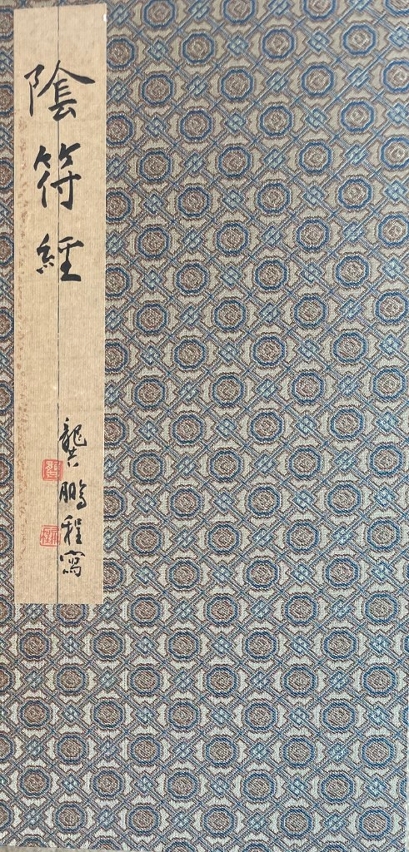 陰符經
龔鵬程寫